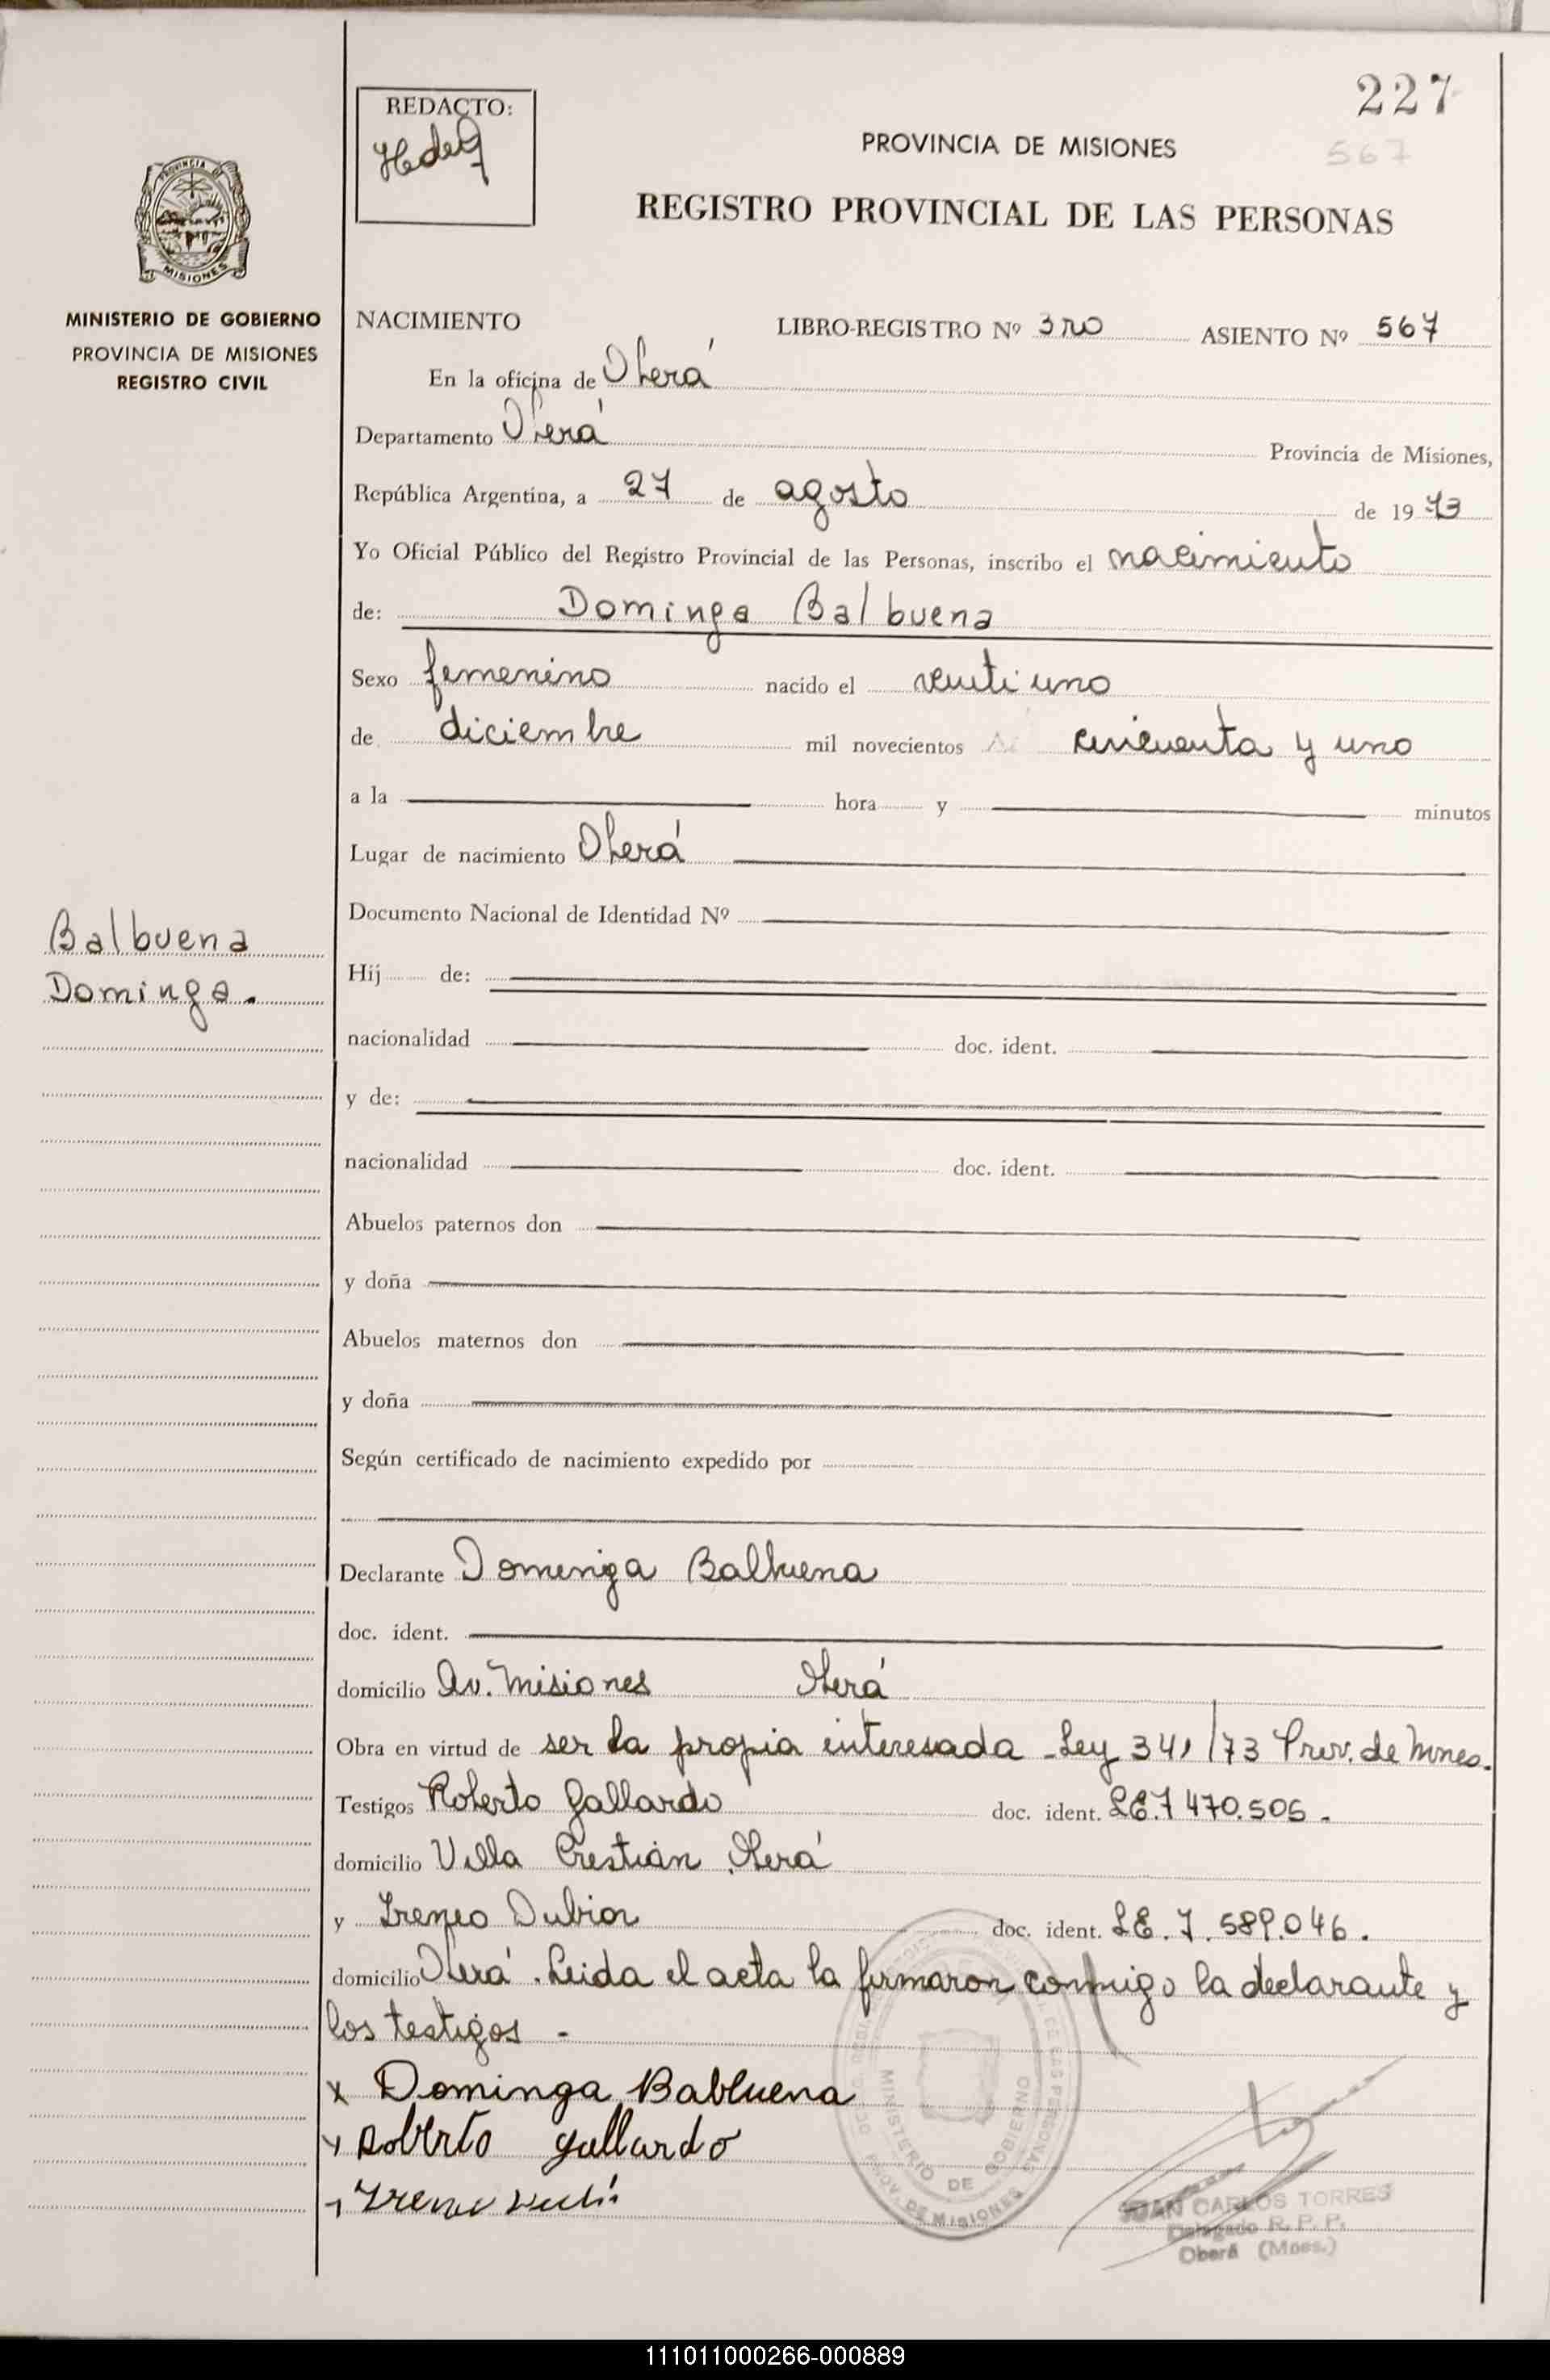 227
567
REDACTO:
PROVINCIA DE MISIONES
REGISTRO PROVINCIAL DE LAS PERSONAS
PROVINCIA DE
MISIONES
MINISTERIO DE GOBIERNO
PROVINCIA DE MISIONES
REGISTRO CIVIL
NACIMIENTO LIBRO-REGISTRO Nº 3ro ASIENTO Nº 567
En la oficina de Oberá
Departamento Oberá Provincia de Misiones,
República Argentina, a 27 de agosto de 1973
Yo Oficial Público del Registro Provincial de las Personas, inscribo el nacimiento
de: Dominga Balbuena
Sexo femenino nacido el veuti uno
de diciembre mil novecientos cincuenta y uno
a la hora y minutos
Lugar de nacimiento Oberá
Documento Nacional de Identidad Nº
Balbuena
Dominga.
Hij de:
nacionalidad doc. ident.
y de:
nacionalidad doc. ident.
Abuelos paternos don
y doña
Abuelos maternos don
y doña
Según certificado de nacimiento expedido por
Declarante Dominga Balbuena
doc. ident.
domicilio Av. Misiones Oberá
Obra en virtud de ser la propia interesada - Ley 341/73 Prov. de Mnes.
Testigos Roberto Gallardo doc. ident. LE. 7 470.506 -
domicilio Villa Cristian Oberá
y Ireneo doc. ident. LE. 7. 589.046.
domicilio Oberá. Leida el acta la firmaron conmigo la declarante y
los testigos -
x Dominga Babluena
Roberto gallardo
MINISTERIO DE GOBIERNO
PROV. DE MISIONES
JUAN CARLOS TORRES
Delegado R. P. P.
Oberá (Mnes.)
111011000266-000889